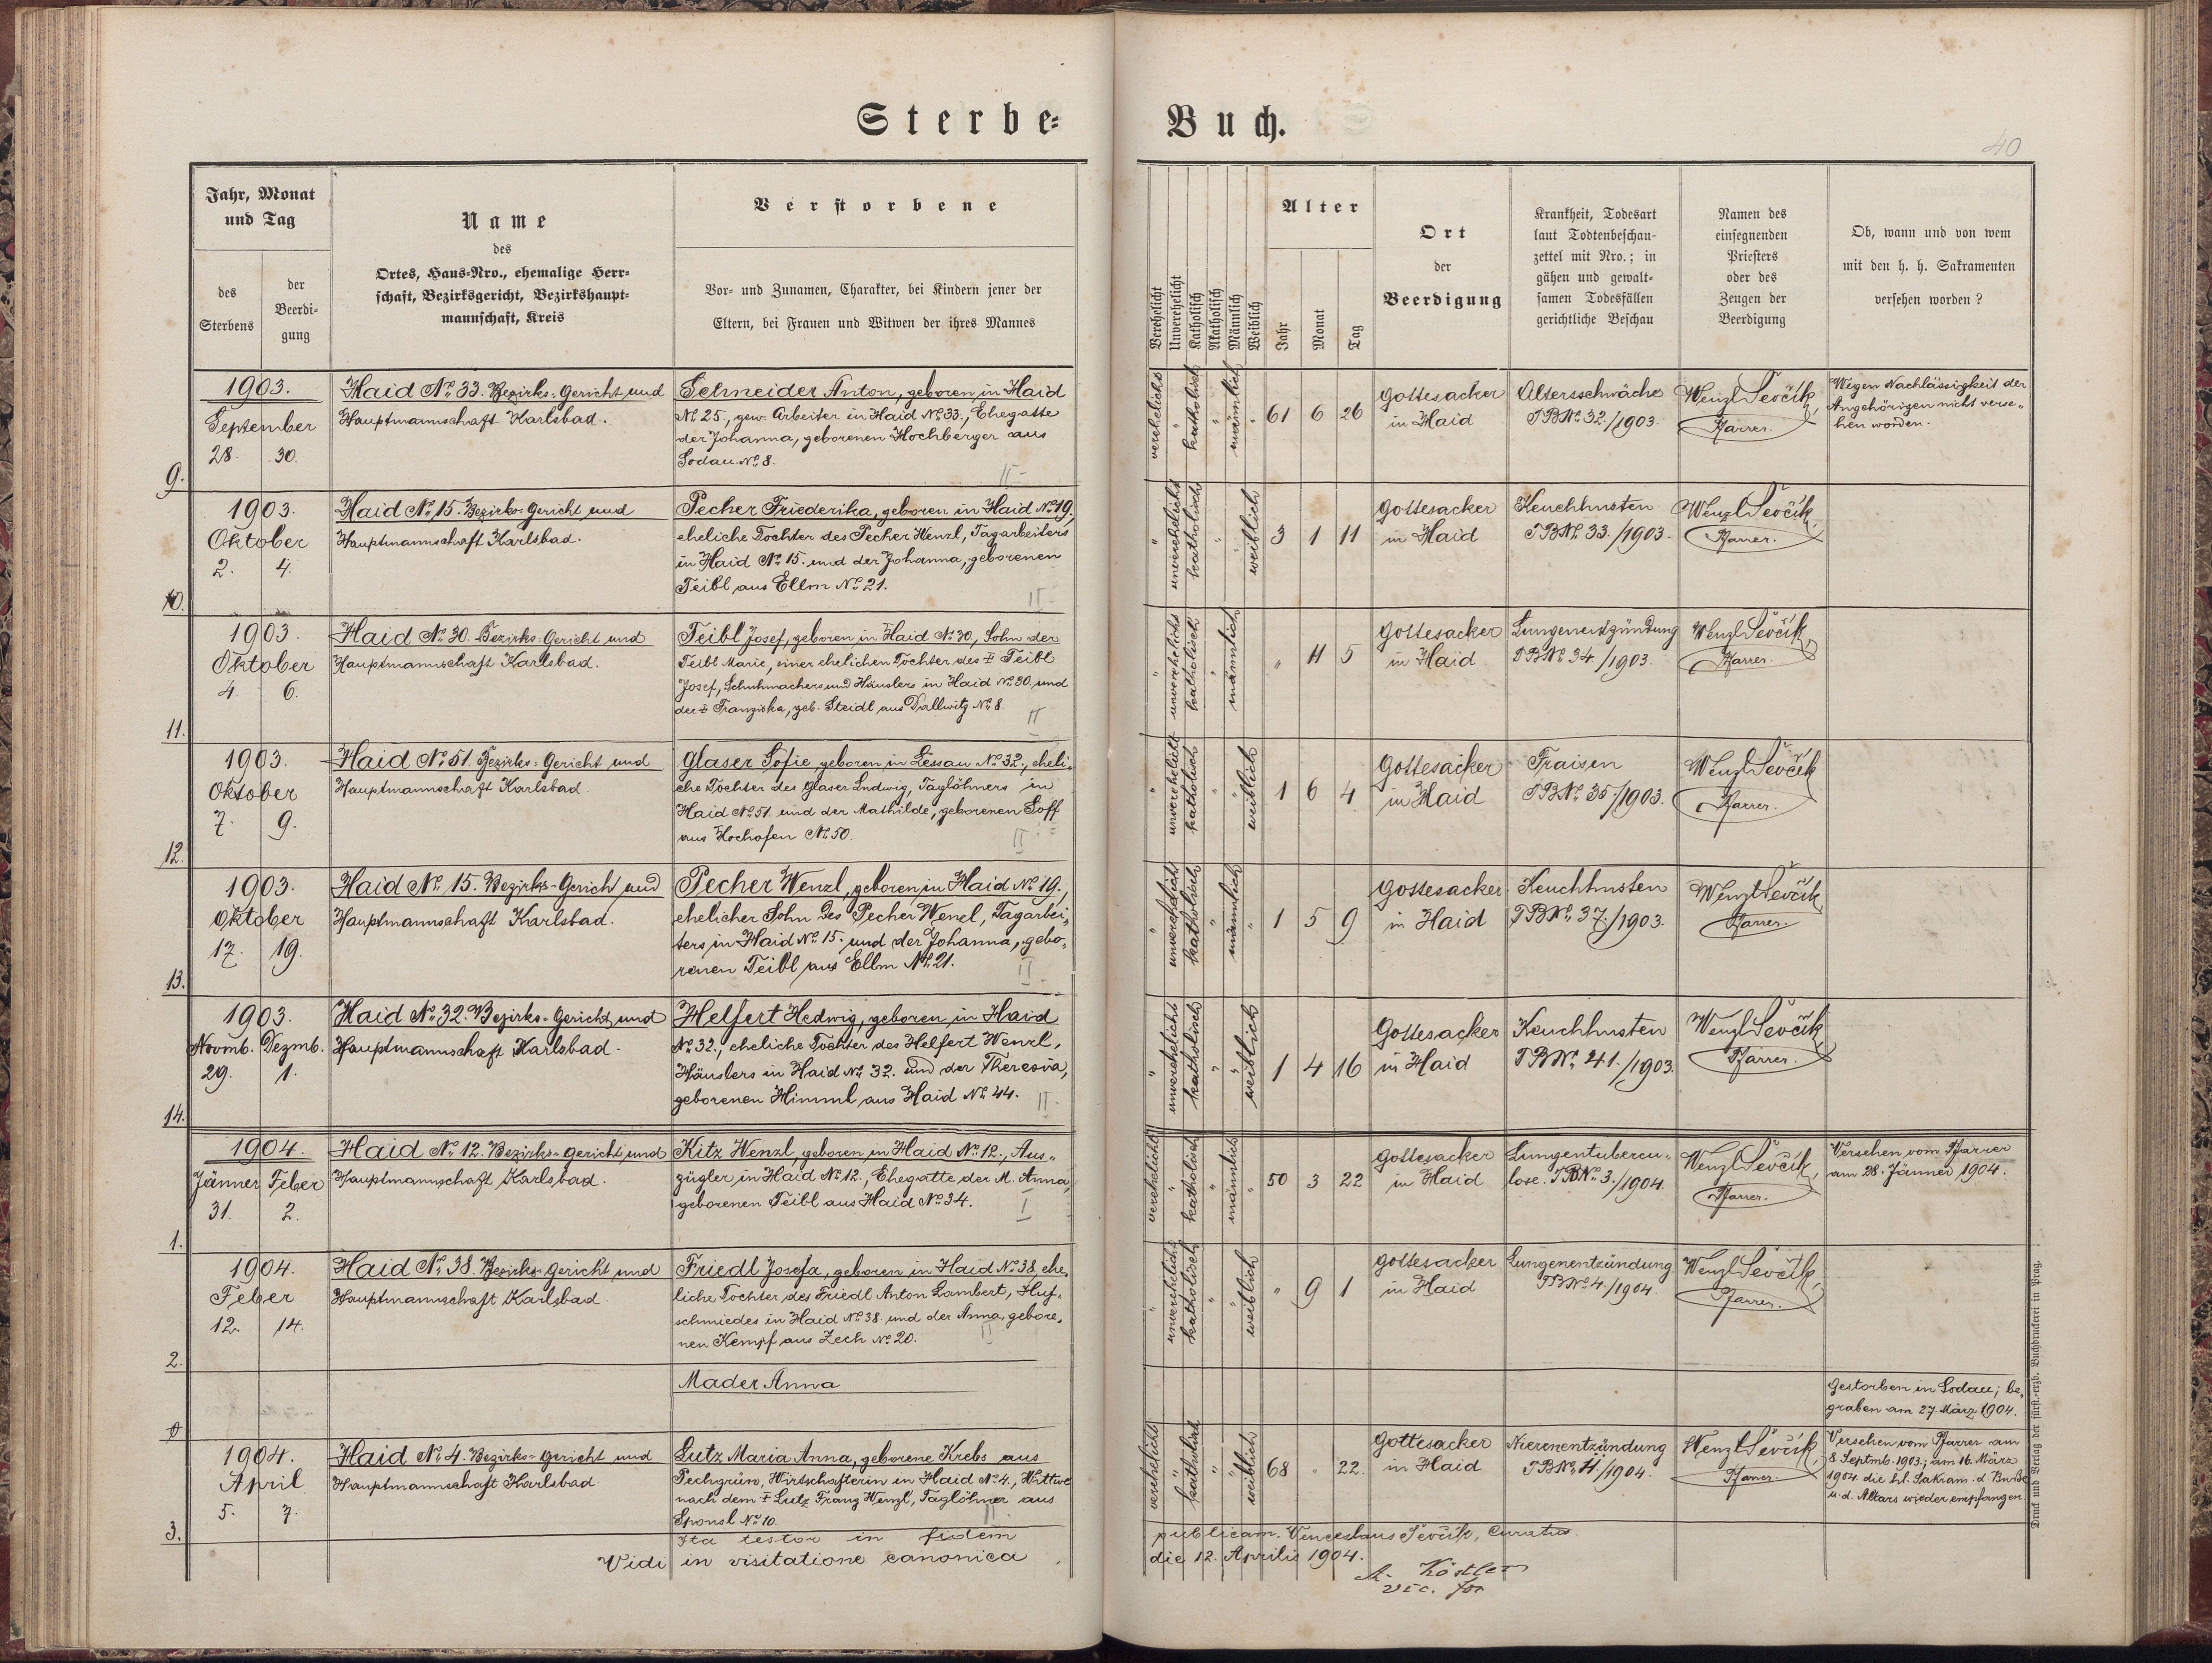 Sterbe-
Buch.
40
Jahr, Monat
und Tag
des
Sterbens
der
Beerdi-
gung
Name
des
Ortes, Haus-Nro., ehemalige Herr-
schaft, Bezirksgericht, Bezirkshaupt-
mannschaft, Kreis
Verstorbene
Vor- und Zunamen, Charakter, bei Kindern jener der
Eltern, bei Frauen und Witwen der ihres Mannes
Verehelicht
Unverehelicht
Katholisch
Akatholisch
Männlich
Weiblich
Alter
Jahr
Monat
Tag
Ort
der
Beerdigung
Krankheit, Todesart
laut Todtenbeschau-
zettel mit Nro.; in
gähen und gewalt-
samen Todesfällen
gerichtliche Beschau
Namen des
einsegnenden
Priesters
oder des
Zeugen der
Beerdigung
Ob, wann und von wem
mit den h. h. Sakramenten
versehen worden?
9.
1903.
September
28. 30.
Haid No. 33. Bezirks-Gericht und
Hauptmannschaft Karlsbad.
Schneider Anton, geboren in Haid
No. 25, gew. Arbeiter in Haid No. 33, Ehegatte
der Johanna, geborenen Hochberger aus
Sodau No. 8.
II
verehelicht " katholisch " männlich "
61 6 26
Gottesacker
in Haid
Altersschwäche
TBNo. 32./1903.
Wenzl Ševčik,
Pfarrer.
Wegen Nachlässigkeit der
Angehörigen nicht verse„
hen worden.
10.
1903.
Oktober
2. 4.
Haid No. 15. Bezirks-Gericht und
Hauptmannschaft Karlsbad.
Pecher Friederika, geboren in Haid No. 19,
eheliche Tochter des Pecher Wenzl, Tagarbeiters
in Haid No. 15. und der Johanna, geborenen
Teibl aus Ellm No. 21.
II
" unverehelicht katholisch " " weiblich
3 1 11
Gottesacker
in Haid
Keuchhusten
TBNo. 33./1903.
Wenzl Ševčik,
Pfarrer.
11.
1903.
Oktober
4. 6.
Haid No. 30. Bezirks-Gericht und
Hauptmannschaft Karlsbad.
Teibl Josef, geboren in Haid No. 30, Sohn der
Teibl Marie, einer ehelichen Tochter des ‡ Teibl
Josef, Schuhmachers und Häuslers in Haid No. 30 und
der ‡ Franziska, geb. Steidl aus Dallwitz No. 8.
II
" unverehelicht katholisch " männlich
" 11 5
Gottesacker
in Haid
Lungenentzündung
TBNo. 34/1903.
Wenzl Ševčik,
Pfarrer.
12.
1903.
Oktober
7. 9.
Haid No. 51. Bezirks-Gericht und
Hauptmannschaft Karlsbad.
Glaser Sofie, geboren in Lessau No. 32., eheli„
che Tochter des Glaser Ludwig, Taglöhners in
Haid No. 51. und der Mathilde, geborenen Soff
aus Hochofen No. 50.
II
" unverehelicht katholisch " " weiblich
1 6 4
Gottesacker
in Haid
Fraisen
TBNo. 35./1903.
Wenzl Ševčik
Pfarrer.
13.
1903.
Oktober
17. 19.
Haid No. 15. Bezirks-Gericht und
Hauptmannschaft Karlsbad.
Pecher Wenzl, geboren in Haid No. 19.,
ehelicher Sohn des Pecher Wenzl, Tagarbei„
ters in Haid No. 15. und der Johanna, gebo„
renen Teibl aus Ellm No. 21.
II
" unverehelicht katholisch " männlich "
1 5 9
Gottesacker
in Haid
Keuchhusten
TBNo. 37./1903.
Wenzl Ševčik,
Pfarrer.
14.
1903.
Novmb. Dezmb.
29. 1.
Haid No. 32. Bezirks-Gericht und
Hauptmannschaft Karlsbad.
Helfert Hedwig, geboren in Haid
No. 32., eheliche Tochter des Helfert Wenzl,
Häuslers in Haid No. 32. und der Theresia,
geborenen Himml aus Haid No. 44.
II
" unverehelicht katholisch " " weiblich
1 4 16
Gottesacker
in Haid
Keuchhusten
TBNo. 41./1903.
Wenzl Ševčik,
Pfarrer.
1.
1904.
Jänner Feber
31. 2.
Haid No. 12. Bezirks-Gericht und
Hauptmannschaft Karlsbad.
Kitz Wenzl, geboren in Haid No. 12., Aus„
zügler in Haid No. 12., Ehegatte der M. Anna,
geborenen Teibl aus Haid No. 34.
I
verehelicht " katholisch " männlich "
50 3 22
Gottesacker
in Haid
Lungentubercu„
lose. TBNo. 3./1904.
Wenzl Ševčik,
Pfarrer.
Versehen vom Pfarrer
am 28. Jänner 1904.
2.
1904.
Feber
12. 14.
Haid No. 38. Bezirks-Gericht und
Hauptmannschaft Karlsbad.
Friedl Josefa, geboren in Haid No. 38, ehe„
liche Tochter des Friedl Anton Lambert, Huf„
schmiedes in Haid No. 38. und der Anna, gebore„
nen Kempf aus Zech No. 20.
II
" unverehelicht katholisch " " weiblich
" 9 1
Gottesacker
in Haid
Lungenentzündung
TBNo. 4/1904.
Wenzl Ševčik,
Pfarrer.
0
Mader Anna
Gestorben in Sodau; be„
graben am 27. März 1904.
3.
1904.
April
5. 7.
Haid No. 4. Bezirks-Gericht und
Hauptmannschaft Karlsbad
Lutz Maria Anna, geborene Krebs aus
Pechgrün, Wirtschafterin in Haid No. 4., Wittwe
nach dem ‡ Lutz Franz Wenzl, Taglöhner aus
Sponsl No. 10.
II
verehelicht " katholisch " " weiblich
68 " 22
Gottesacker
in Haid
Nierenentzündung
TBNo. 11/1904.
Wenzl Ševčik,
Pfarrer.
Versehen vom Pfarrer am
8 Septmb. 1903.; am 16. März
1904. die hl. Sakram. d. Buße
u. d. Altars wieder empfangen.
Ita testor in fidem
publicam. Venceslaus Ševčik, Curatus.
Vidi in visitatione canonica
die 12. Aprilis 1904.
A. Köstler
vic. for
Druck und Verlag der fürst.-erzb. Buchdruckerei in Prag.